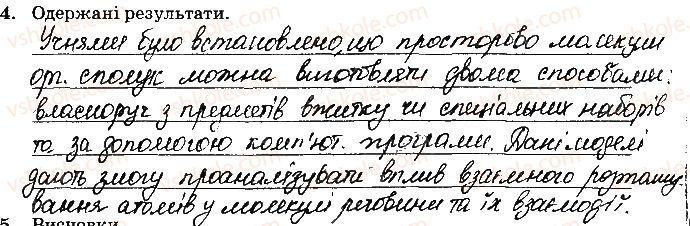 4. Одержані результати.
Учнями було встановлено, що просторово молекули
орг. сполук можна виготовляти двома способами:
власноруч з предметів вжитку чи спеціальних наборів
та за допомогою комп'ют. програми. Дані моделі
дають змогу проаналізувати вплив взаємного розташу
вання атомів у молекулі речовини та їх взаємодії.
5. Висновки